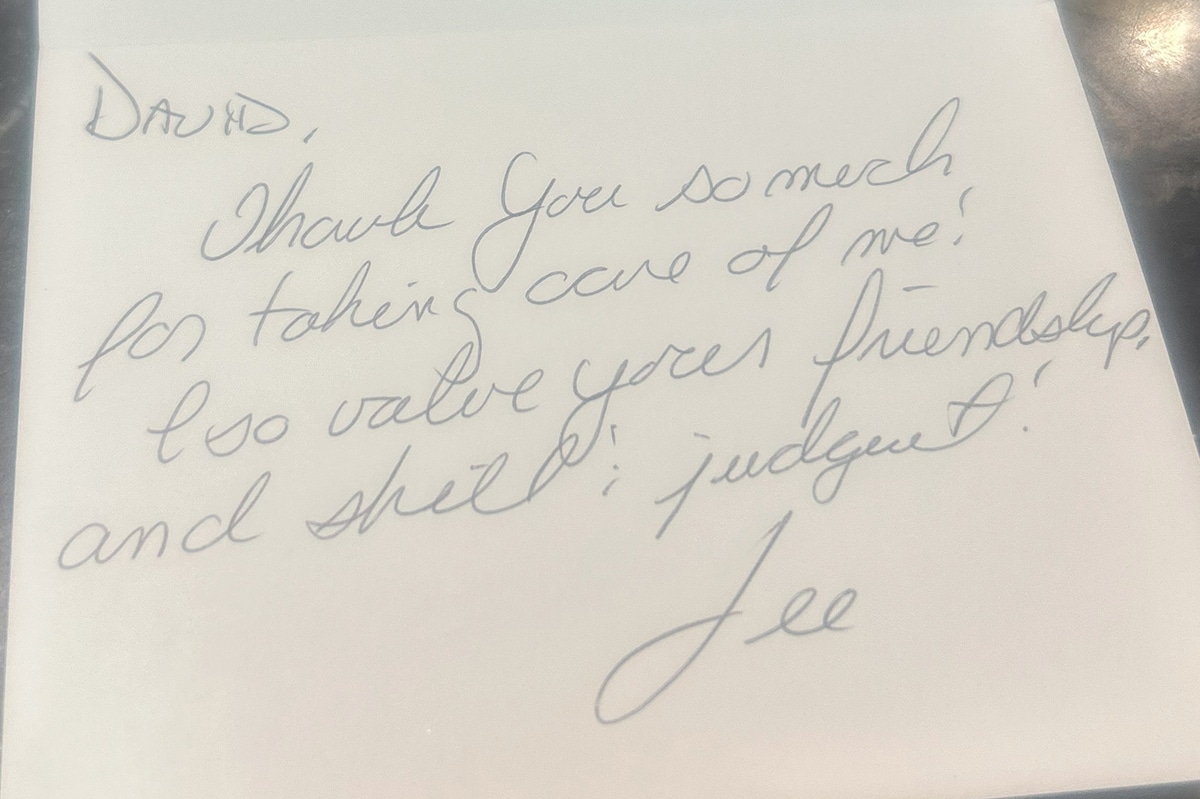 DAVID,
Thank you so much
for taking care of me!
I so value your friendship,
and skill & judgment!
Lee